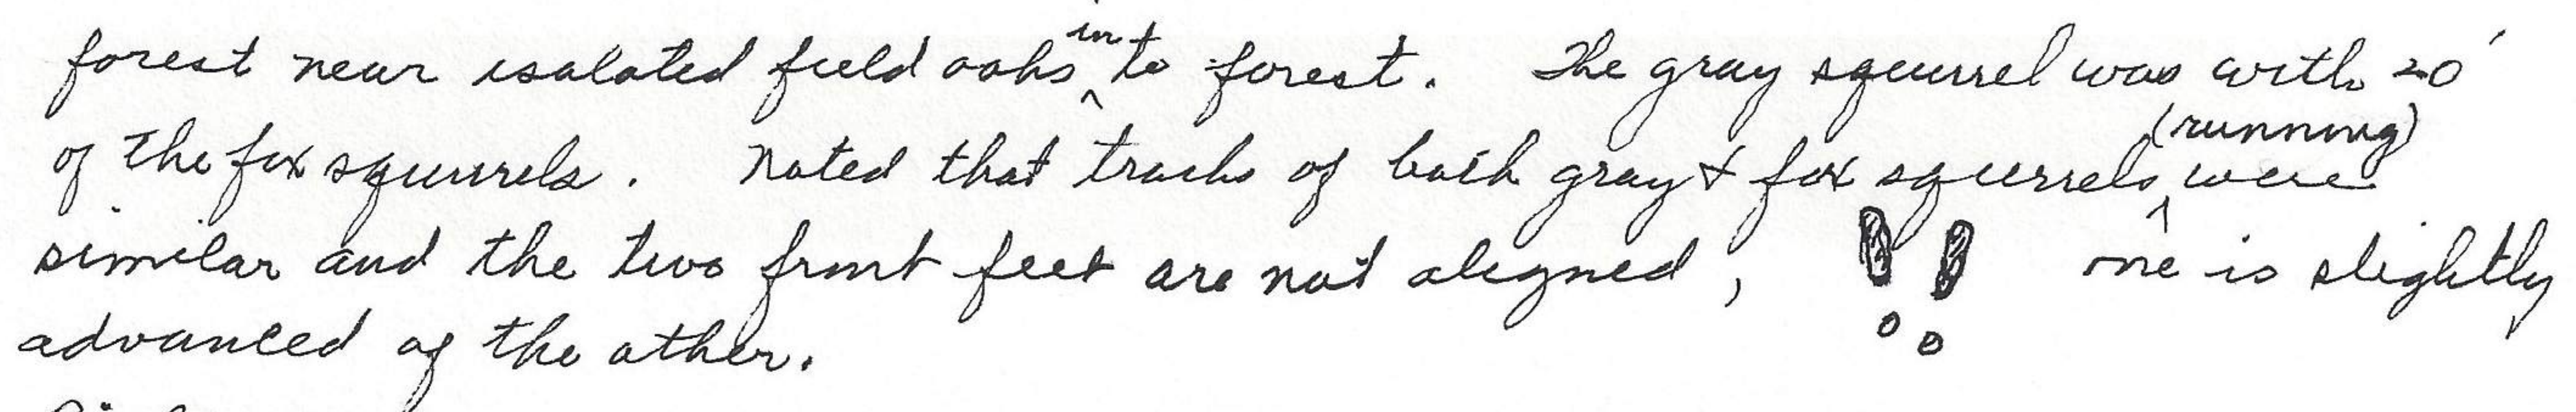 forest near isolated field oaks into forest. The gray squirrel was with 20'
of the fox squirrels. Noted that tracks of both gray & fox squirrels (running) were
similar and the two front feet are not aligned, one is slightly
advanced of the other.